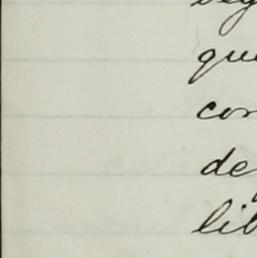 que
con
de
lib